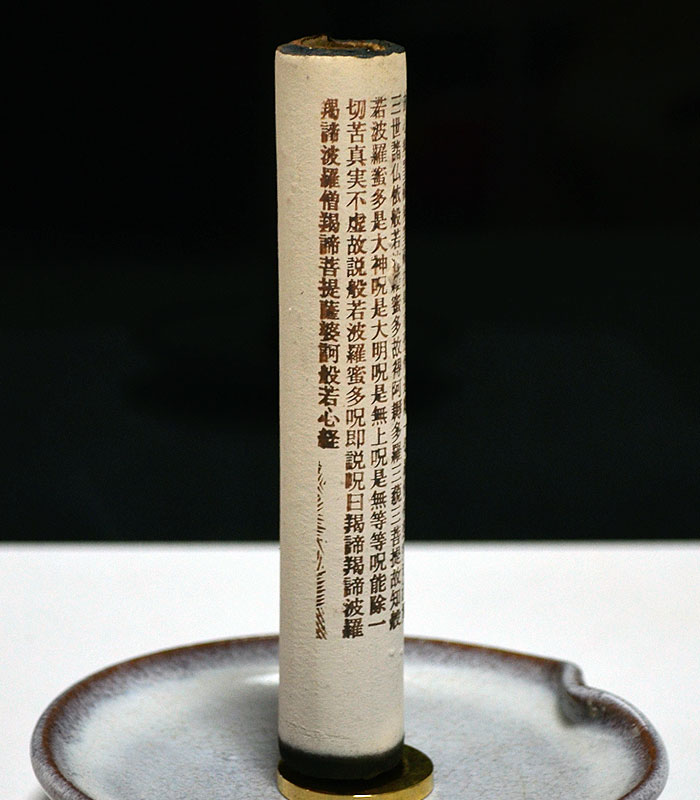 三世諸仏依般若波羅蜜多故得阿耨多羅三藐三菩提故知般
若波羅蜜多是大神呪是大明呪是無上呪是無等等呪能除一
切苦真実不虚故説般若波羅蜜多呪即説呪曰羯諦羯諦波羅
羯諦波羅僧羯諦菩提薩婆訶般若心経